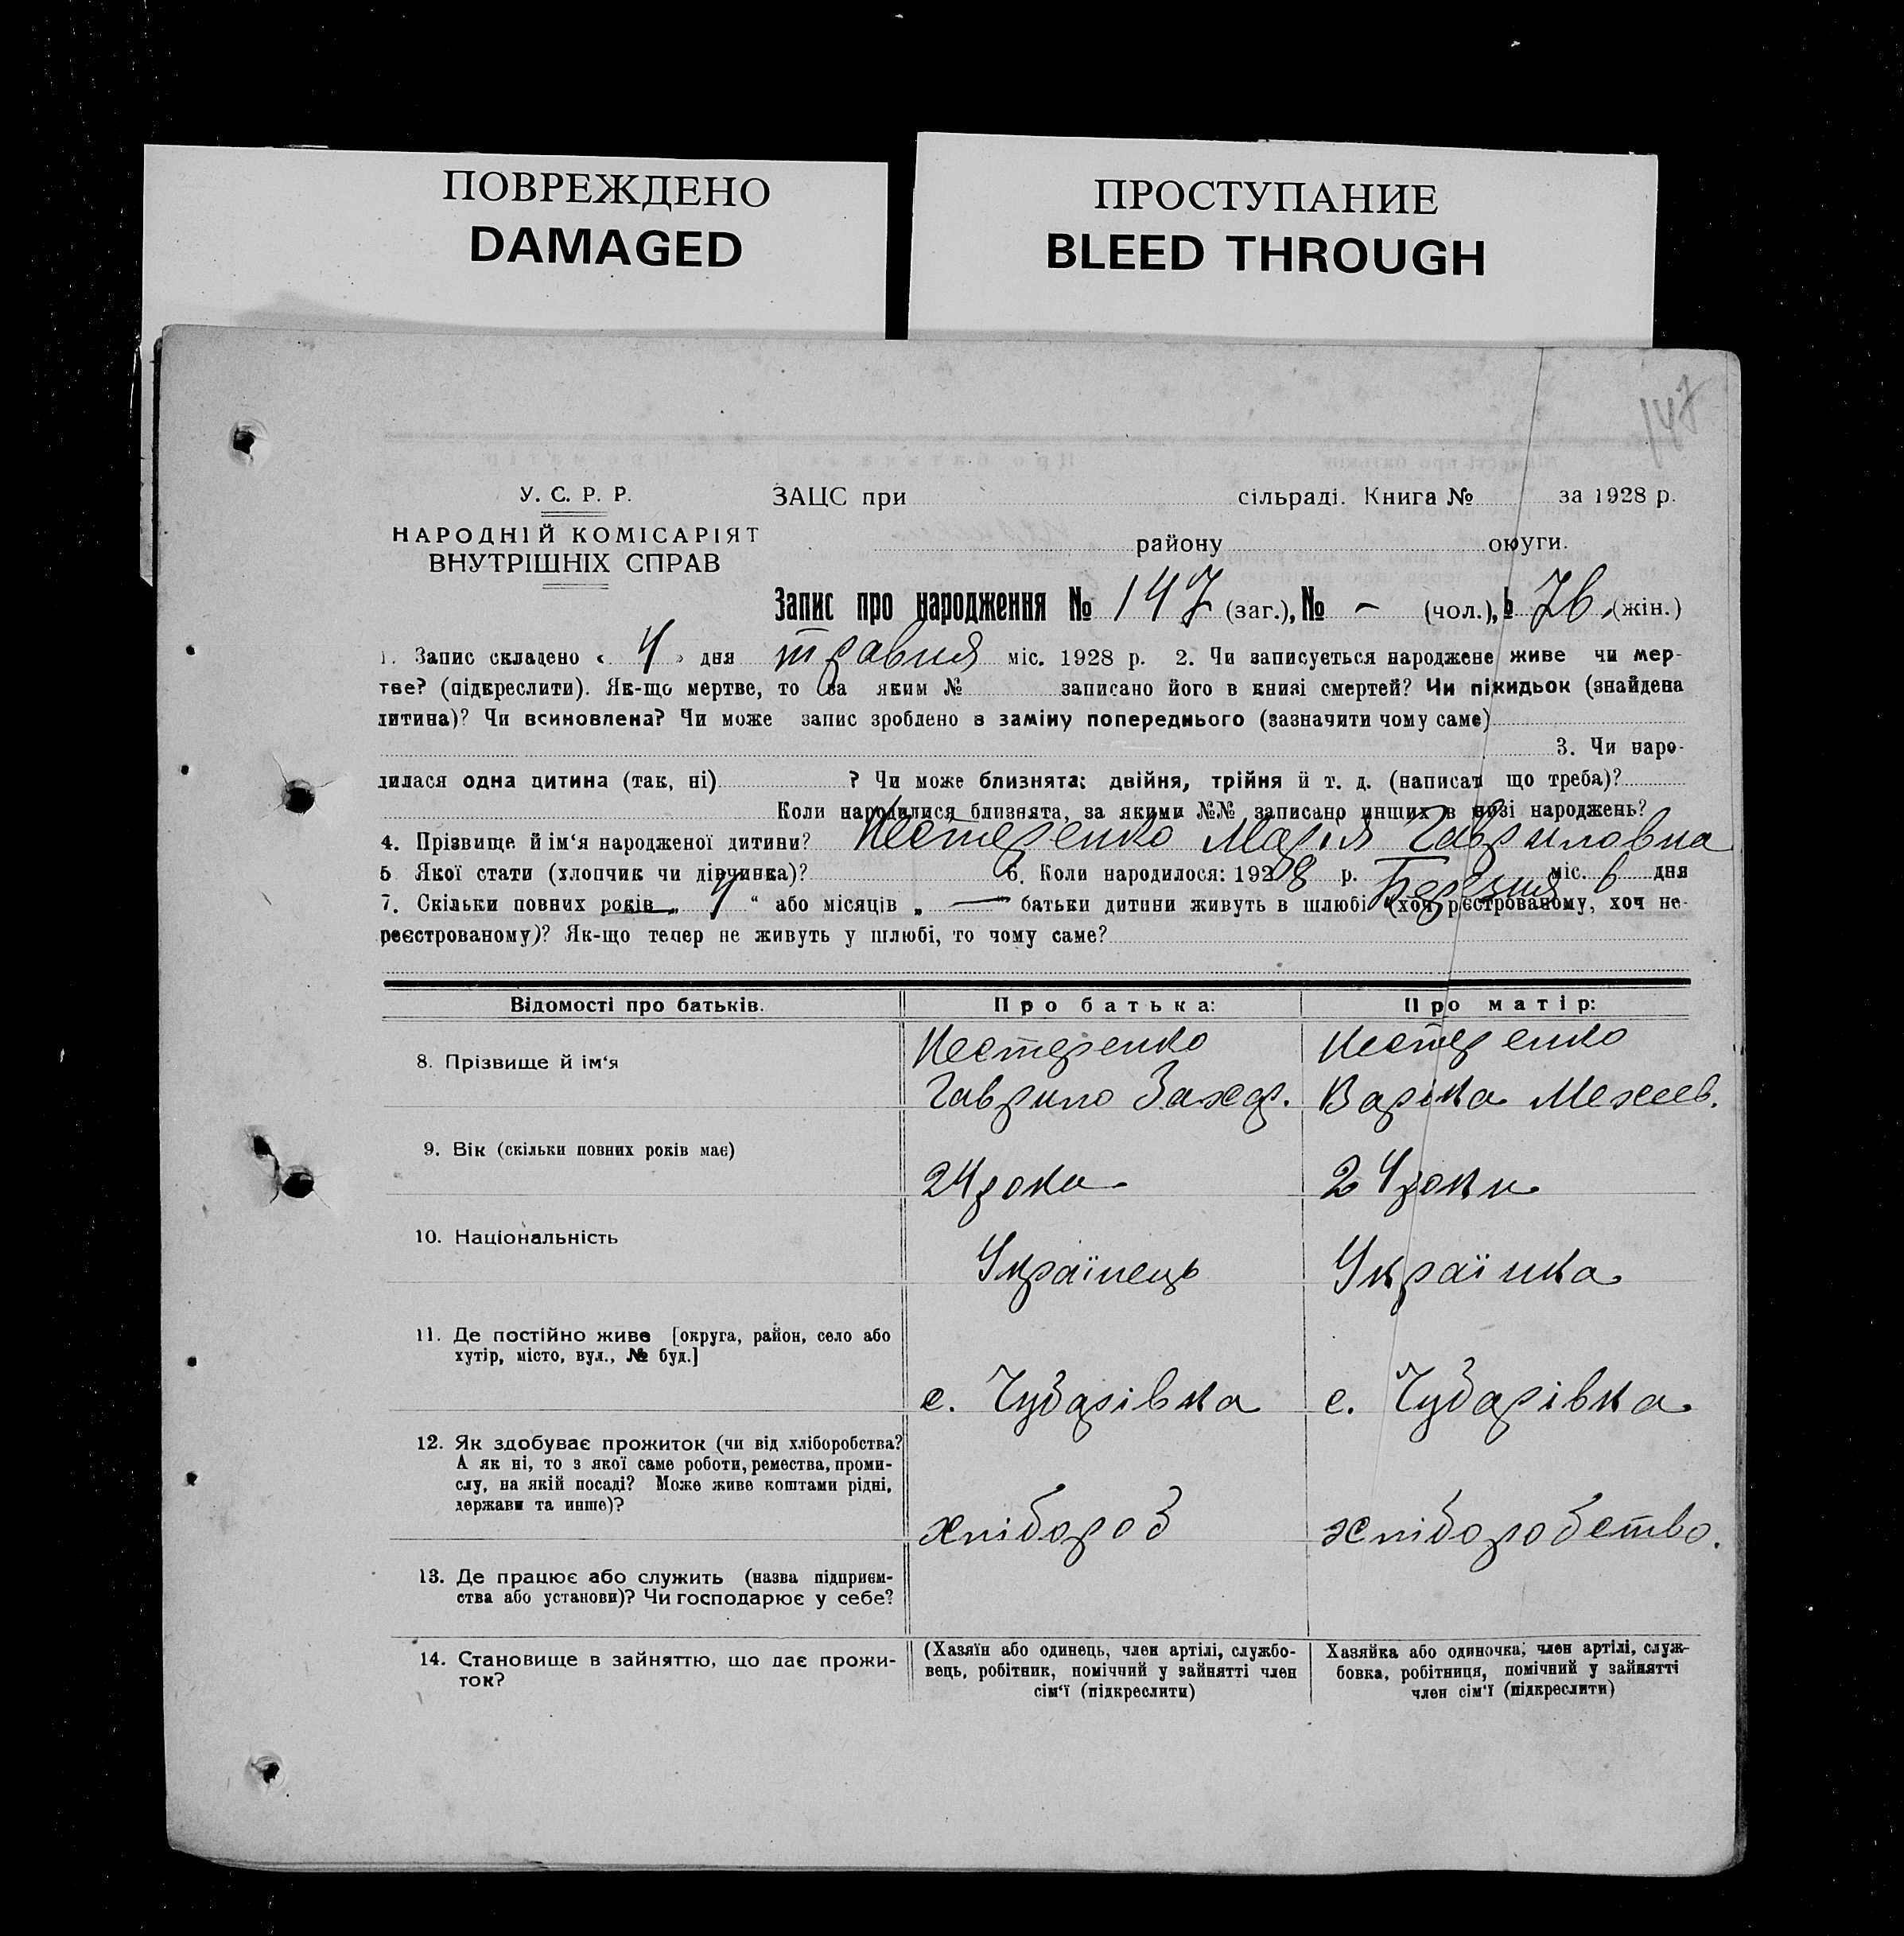 ПОВРЕЖДЕНО
DAMAGED
ПРОСТУПАНИЕ
BLEED THROUGH
147
У. С. Р. Р.
НАРОДНІЙ КОМІСАРІЯТ
ВНУТРІШНІХ СПРАВ
ЗАЦС при сільраді. Книга № за 1928 р.
району округи.
Запис про народження № 147 (заг.), № – (чол.), № 76. (жін.)
1. Запис складено « 4 » дня травня міс. 1928 р. 2. Чи записується народжене живе чи мер-
тве? (підкреслити). Як-що мертве, то за яким № записано його в книзі смертей? Чи пікидьок (знайдена
дитина)? Чи всиновлена? Чи може запис зроблено в заміну попереднього (зазначити чому саме)
3. Чи наро-
дилася одна дитина (так, ні) ? Чи може близнята: двійня, трійня й т. д. (написат що треба)?
Коли народилися близнята, за якими №№ записано инших в низі народжень?
4. Прізвище й ім'я народженої дитини? Нестеренко Марія Гавриловна
5 Якої стати (хлопчик чи дівчинка)? 6. Коли народилося: 1928 р. Березня міс. 6 дня
7. Скільки повних років „ 4 " або місяців „ — " батьки дитини живуть в шлюбі (хоч реєстрованому, хоч не-
реєстрованому)? Як-що тепер не живуть у шлюбі, то чому саме?
Відомості про батьків. Про батька: Про матір:
8. Прізвище й ім'я Нестеренко Нестеренко
Гаврило Захар. Варка
9. Вік (скільки повних років має) 24 рока 24 роки
10. Національність Українець Українка
11. Де постійно живе [округа, район, село або
хутір, місто, вул., № буд.]
с. Чубарівка с. Чубарівка
12. Як здобуває прожиток (чи від хліборобства?
А як ні, то з якої саме роботи, ремества, проми-
слу, на якій посаді? Може живе коштами рідні,
держави та инше)?
хлібороб хліборобство.
13. Де працює або служить (назва підприєм-
ства або установи)? Чи господарює у себе?
14. Становище в зайняттю, що дає прожи-
ток?
(Хазяїн або одинець, член артілі, службо-
вець, робітник, помічний у зайнятті член
сім'ї (підкреслити)
Хазяйка або одиночка, член артілі, служ-
бовка, робітниця, помічний у зайнятті
член сім'ї (підкреслити)